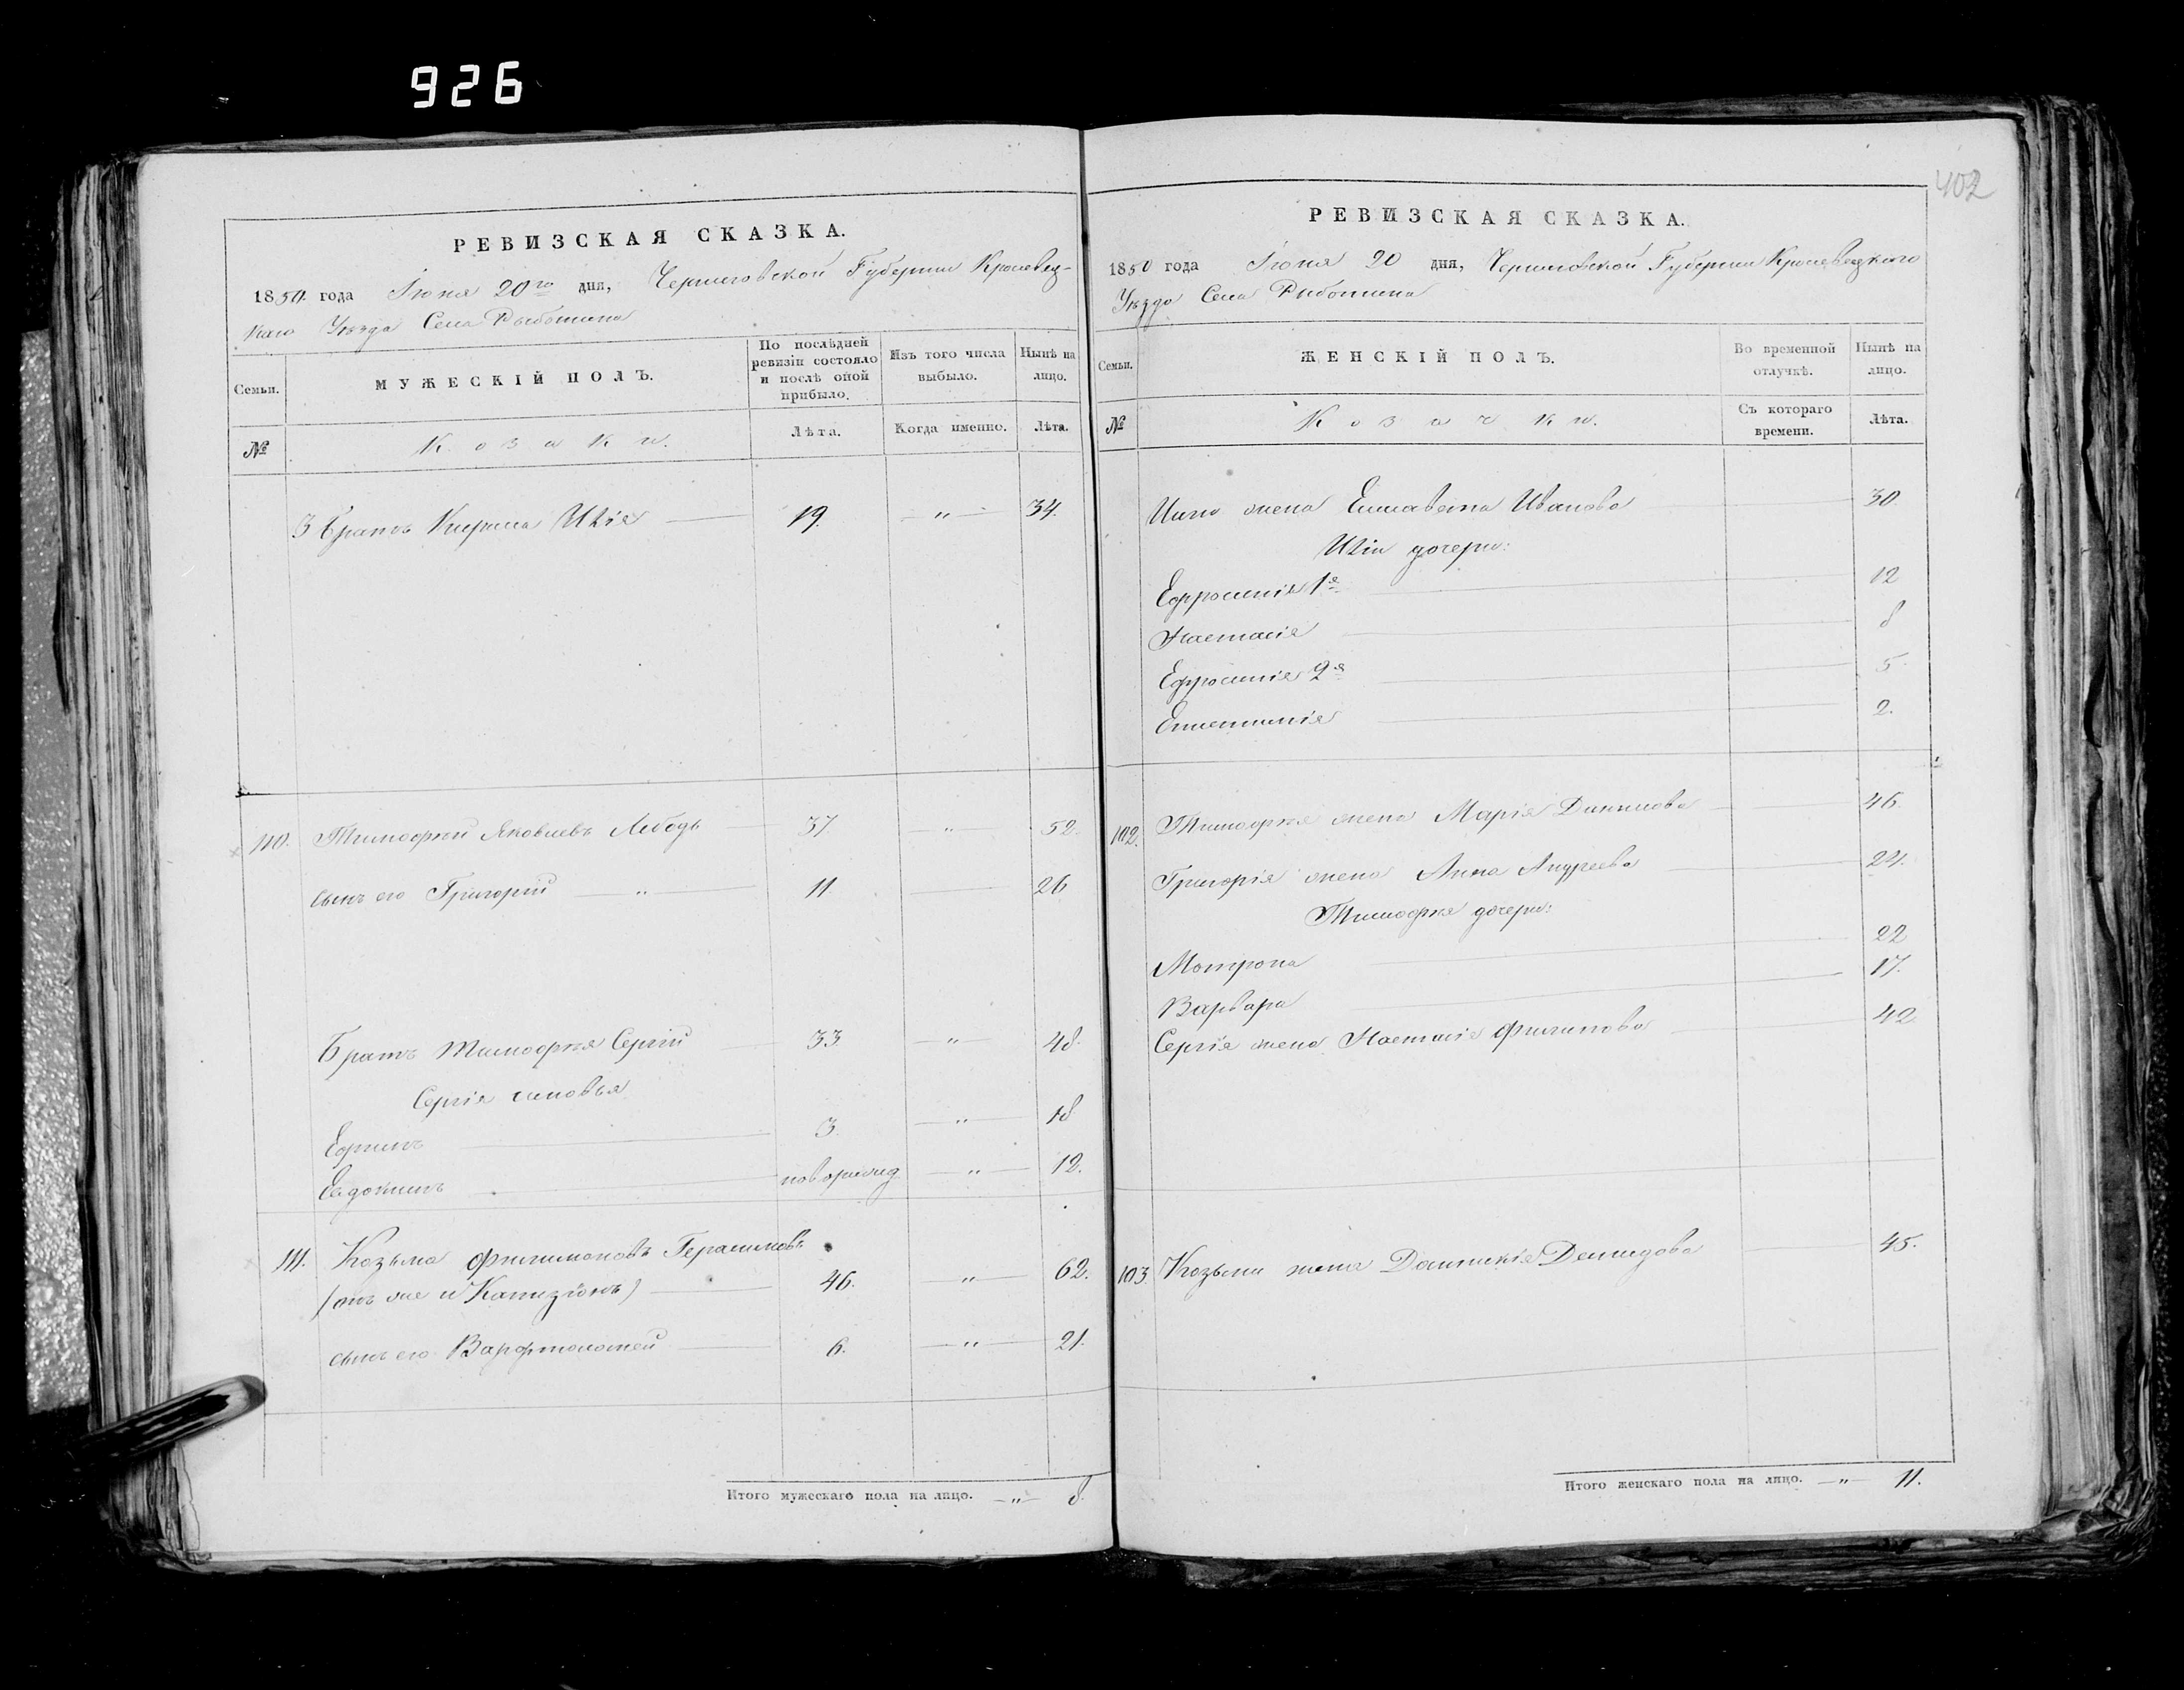 926
402
РЕВИЗСКАЯ СКАЗКА.
1850. года Іюня 20го дня, Черниговской Губерніи Кролевец-
каго Уѣзда Села Рыботина
Семьи.
МУЖЕСКІЙ ПОЛЪ.
По послѣдней ревизіи состояло и послѣ оной прибыло.
Изъ того числа выбыло.
Нынѣ на лицо.
№
Козаки.
Лѣта.
Когда именно.
Лѣта.
3 Братъ Кирила Илія 19 " 34.
110. Тимофѣй Яковлевъ Лебодь 37 " 52.
сынъ его Григорій " 11 26
Братъ Тимофѣя Сергій 33 " 48.
Сергія синовья
Ефимъ 3. " 18
Евдокимъ новорожд " 12.
111. Козьма Филимоновъ Герасимовъ
(онъ же и ) 46. " 62.
сынъ его Варфоломей 6. " 21.
Итого мужескаго пола на лицо. " 8.
РЕВИЗСКАЯ СКАЗКА.
1850 года Іюня 20 дня, Черниговской Губерніи Кролевецкого
Уѣзда Села Рыботина
Семьи.
ЖЕНСКІЙ ПОЛЪ.
Во временной отлучкѣ.
Нынѣ на лицо.
№
Козачки.
Съ котораго времени.
Лѣта.
Иліи жена Елисавета Иванова 30
Иліи дочери:
Ефросинія 1я 12
Настасія 8
Ефросинія 2я 5.
Епистимія 2.
102. Тимофѣя жена Марія Данилова 46.
Григорія жена Анна Андреева 24.
Тимофѣя дочери:
Мотрона 22
Варвара 17.
Сергія жена Настасія Филипова 42
103. Козьмы жена Домникія Демидова 45.
Итого женскаго пола на лицо. " 11.